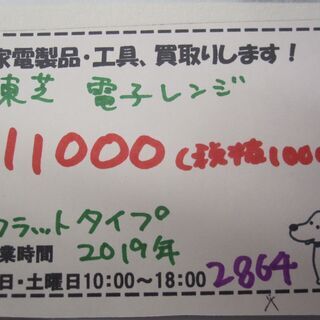 家電製品・工具、買取りします！
東芝 電子レンジ
11000（税抜1000
フラットタイプ
業時間 2019年
日・土曜日10:00～18:00 2864